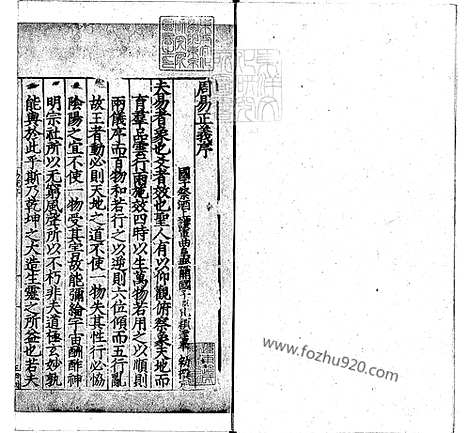 周易正義序
國子祭酒上護軍曲阜縣開國子臣孔穎達奉 勑撰
夫易者象也爻者效也聖人有以仰觀俯察象天地而
育羣品雲行雨施效四時以生萬物若用之以順則
兩儀序而百物和若行之以逆則六位傾而五行亂
故王者動必則天地之道不使一物失其性行必恊
陰陽之宜不使一物受其害故能彌綸宇宙酬酢神
明宗社所以无窮風聲所以不朽非夫道極玄妙孰
能與於此乎斯乃乾坤之大造生靈之所益也若夫
www.fozhu920.com